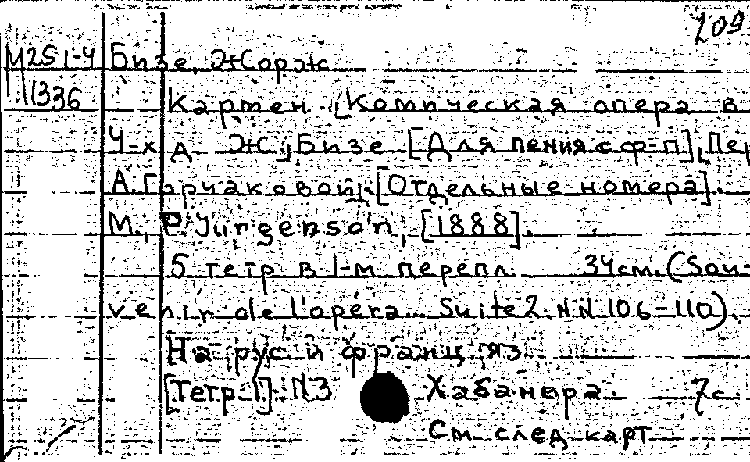 209
М251-4 Бизе, Жорж
11336 Кармен. [Комическая опера в
4-х д. Ж. Бизе [Для пения с ф-п]. Пер
А. Горчаковой. [Отдельные номера].
М., P. Jurgenson, [1888].
5 тетр. в 1-м перепл. 34см. (Sou-
venir de l'opéra. Suite 2. NN 106-110).
На рус. и франц. яз.
[Тетр. 1]. N3 Хабанера. 7с.
См. след. карт.